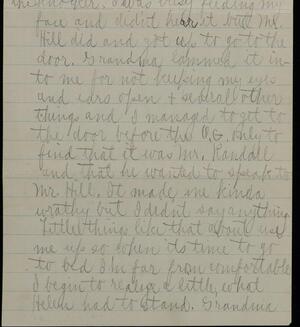 the Knocker. I was busy feeding my
face and didn't hear it but Mr.
Hill did and got up to go to the
door. Grandma lammed it in-
to me for not keeping my eyes
and ears open + severall other
things and I managed to get to
the door before the O.G. only to
find that it was Mr. Randall
and that he wanted to speak to
Mr Hill. It made me kinda
wrathy but I didnt say anything.
Little things like that use
me up so when its time to go
to bed I'm far from comfortable
I begin to realize a little what
Helen had to stand. Grandma